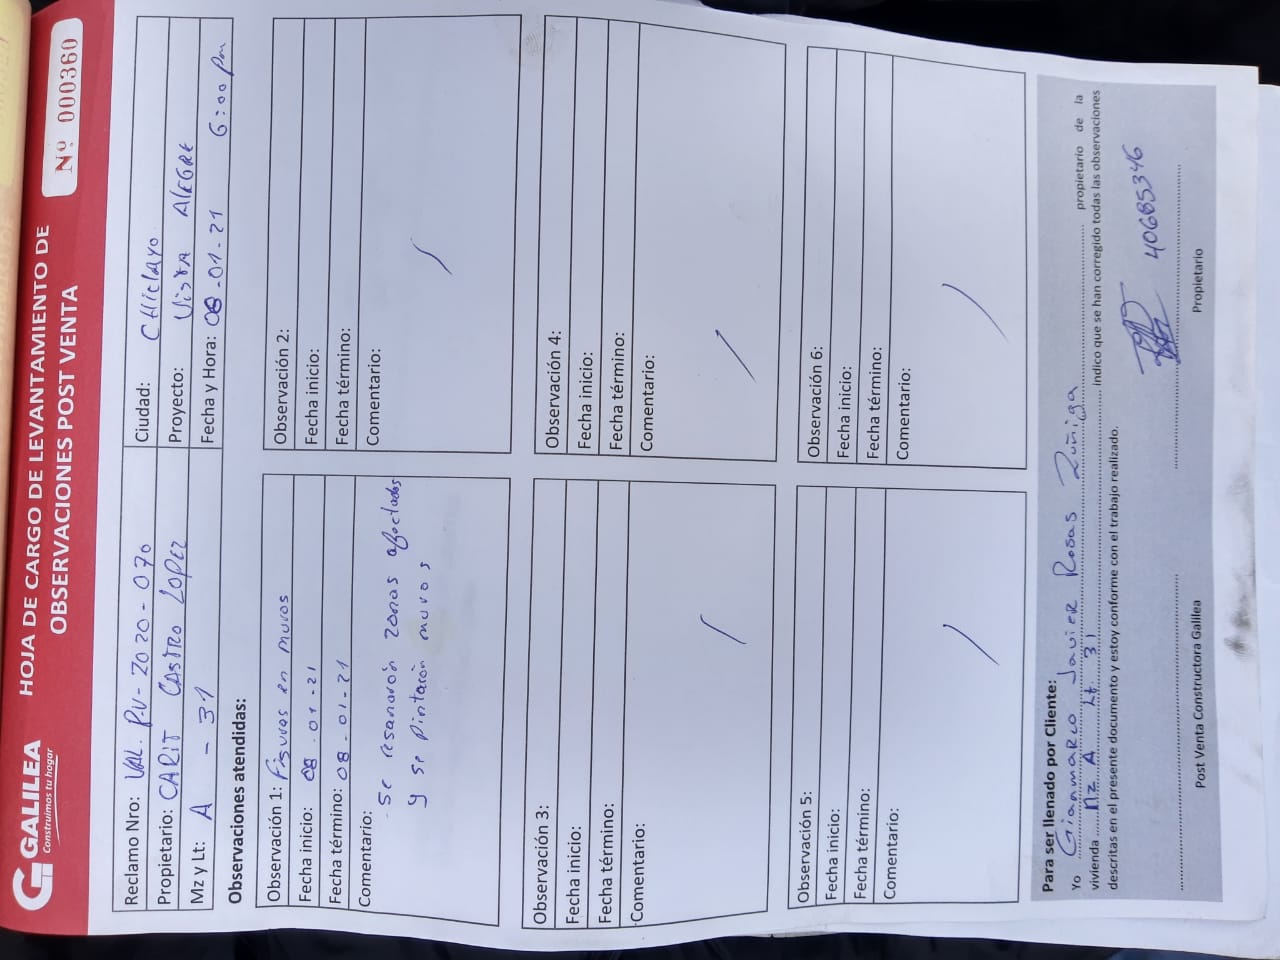 GALILEA
Construimos tu hogar
HOJA DE CARGO DE LEVANTAMIENTO DE
OBSERVACIONES POST VENTA
Nº 000360
Reclamo Nro: VAL. P.V- 2020 - 070
Ciudad: CHICLAYO
Propietario: CARIT CASTRO LOPEZ
Proyecto: VISTA ALEGRE
Mz y Lt: A - 31
Fecha y Hora: 08 -01-21 6:00 pm
Observaciones atendidas:
Observación 1: Fisuras en muros
Fecha inicio: 08 -01-21
Fecha término: 08 -01-21
Comentario:
- Se resanarón zonas afectadas
y se pintarón muros
Observación 2:
Fecha inicio:
Fecha término:
Comentario:
Observación 3:
Fecha inicio:
Fecha término:
Comentario:
Observación 4:
Fecha inicio:
Fecha término:
Comentario:
Observación 5:
Fecha inicio:
Fecha término:
Comentario:
Observación 6:
Fecha inicio:
Fecha término:
Comentario:
Para ser llenado por Cliente:
Yo Gianmarco Javier Rosas Zuñiga propietario de la
vivienda Mz A Lt. 31 indico que se han corregido todas las observaciones
descritas en el presente documento y estoy conforme con el trabajo realizado.
40685346
Post Venta Constructora Galilea
Propietario